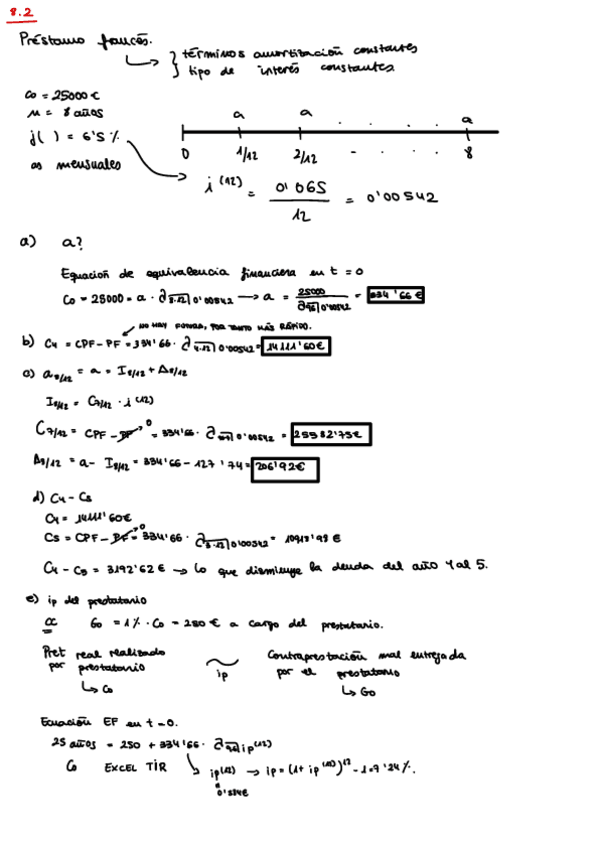 8.2
Préstamo francés.
términos amortización constantes
tipo de interés constantes.
C0 = 25000 €
n = 8 años
j( ) = 6'5 %
as mensuales
a a . . . . a
0 1/12 2/12 - . . . 8
i (12) = 0'065 / 12 = 0'00542
a) a?
Equación de equivalencia financiera en t = 0
C0 = 25000 = a · a 8·12 0'00542 → a = 25000 / a 96 0'00542 = 334'66 €
NO HAY FONDO, POR TANTO MÁS RÁPIDO.
b) C4 = CPF - PF = 334'66 · a 4·12 0'00542 = 14111'60 €
c) a 8/12 = a = I 8/12 + A 8/12
I 8/12 = C 7/12 · i (12)
C 7/12 = CPF - PF 0 = 334'66 · a 0'00542 = 23582'75 €
A 8/12 = a - I 8/12 = 334'66 - 127'74 = 206'92 €
d) C4 - C5
C4 = 14111'60 €
C5 = CPF - PF 0 = 334'66 · a 3·12 0'00542 = 10918'98 €
C4 - C5 = 3192'62 € → lo que disminuye la deuda del año 4 al 5.
e) ip del prestatario
G0 = 1% · C0 = 250 € a cargo del prestatario.
Pret real realizado Contraprestación real entregada
por prestatario ip por el prestatario
C0 G0
Ecuación EF en t = 0.
25 años = 250 + 334'66 · a 96 ip (12)
C0 EXCEL TIR ip (12) → ip = (1 + ip (12)) 12 - 1 =